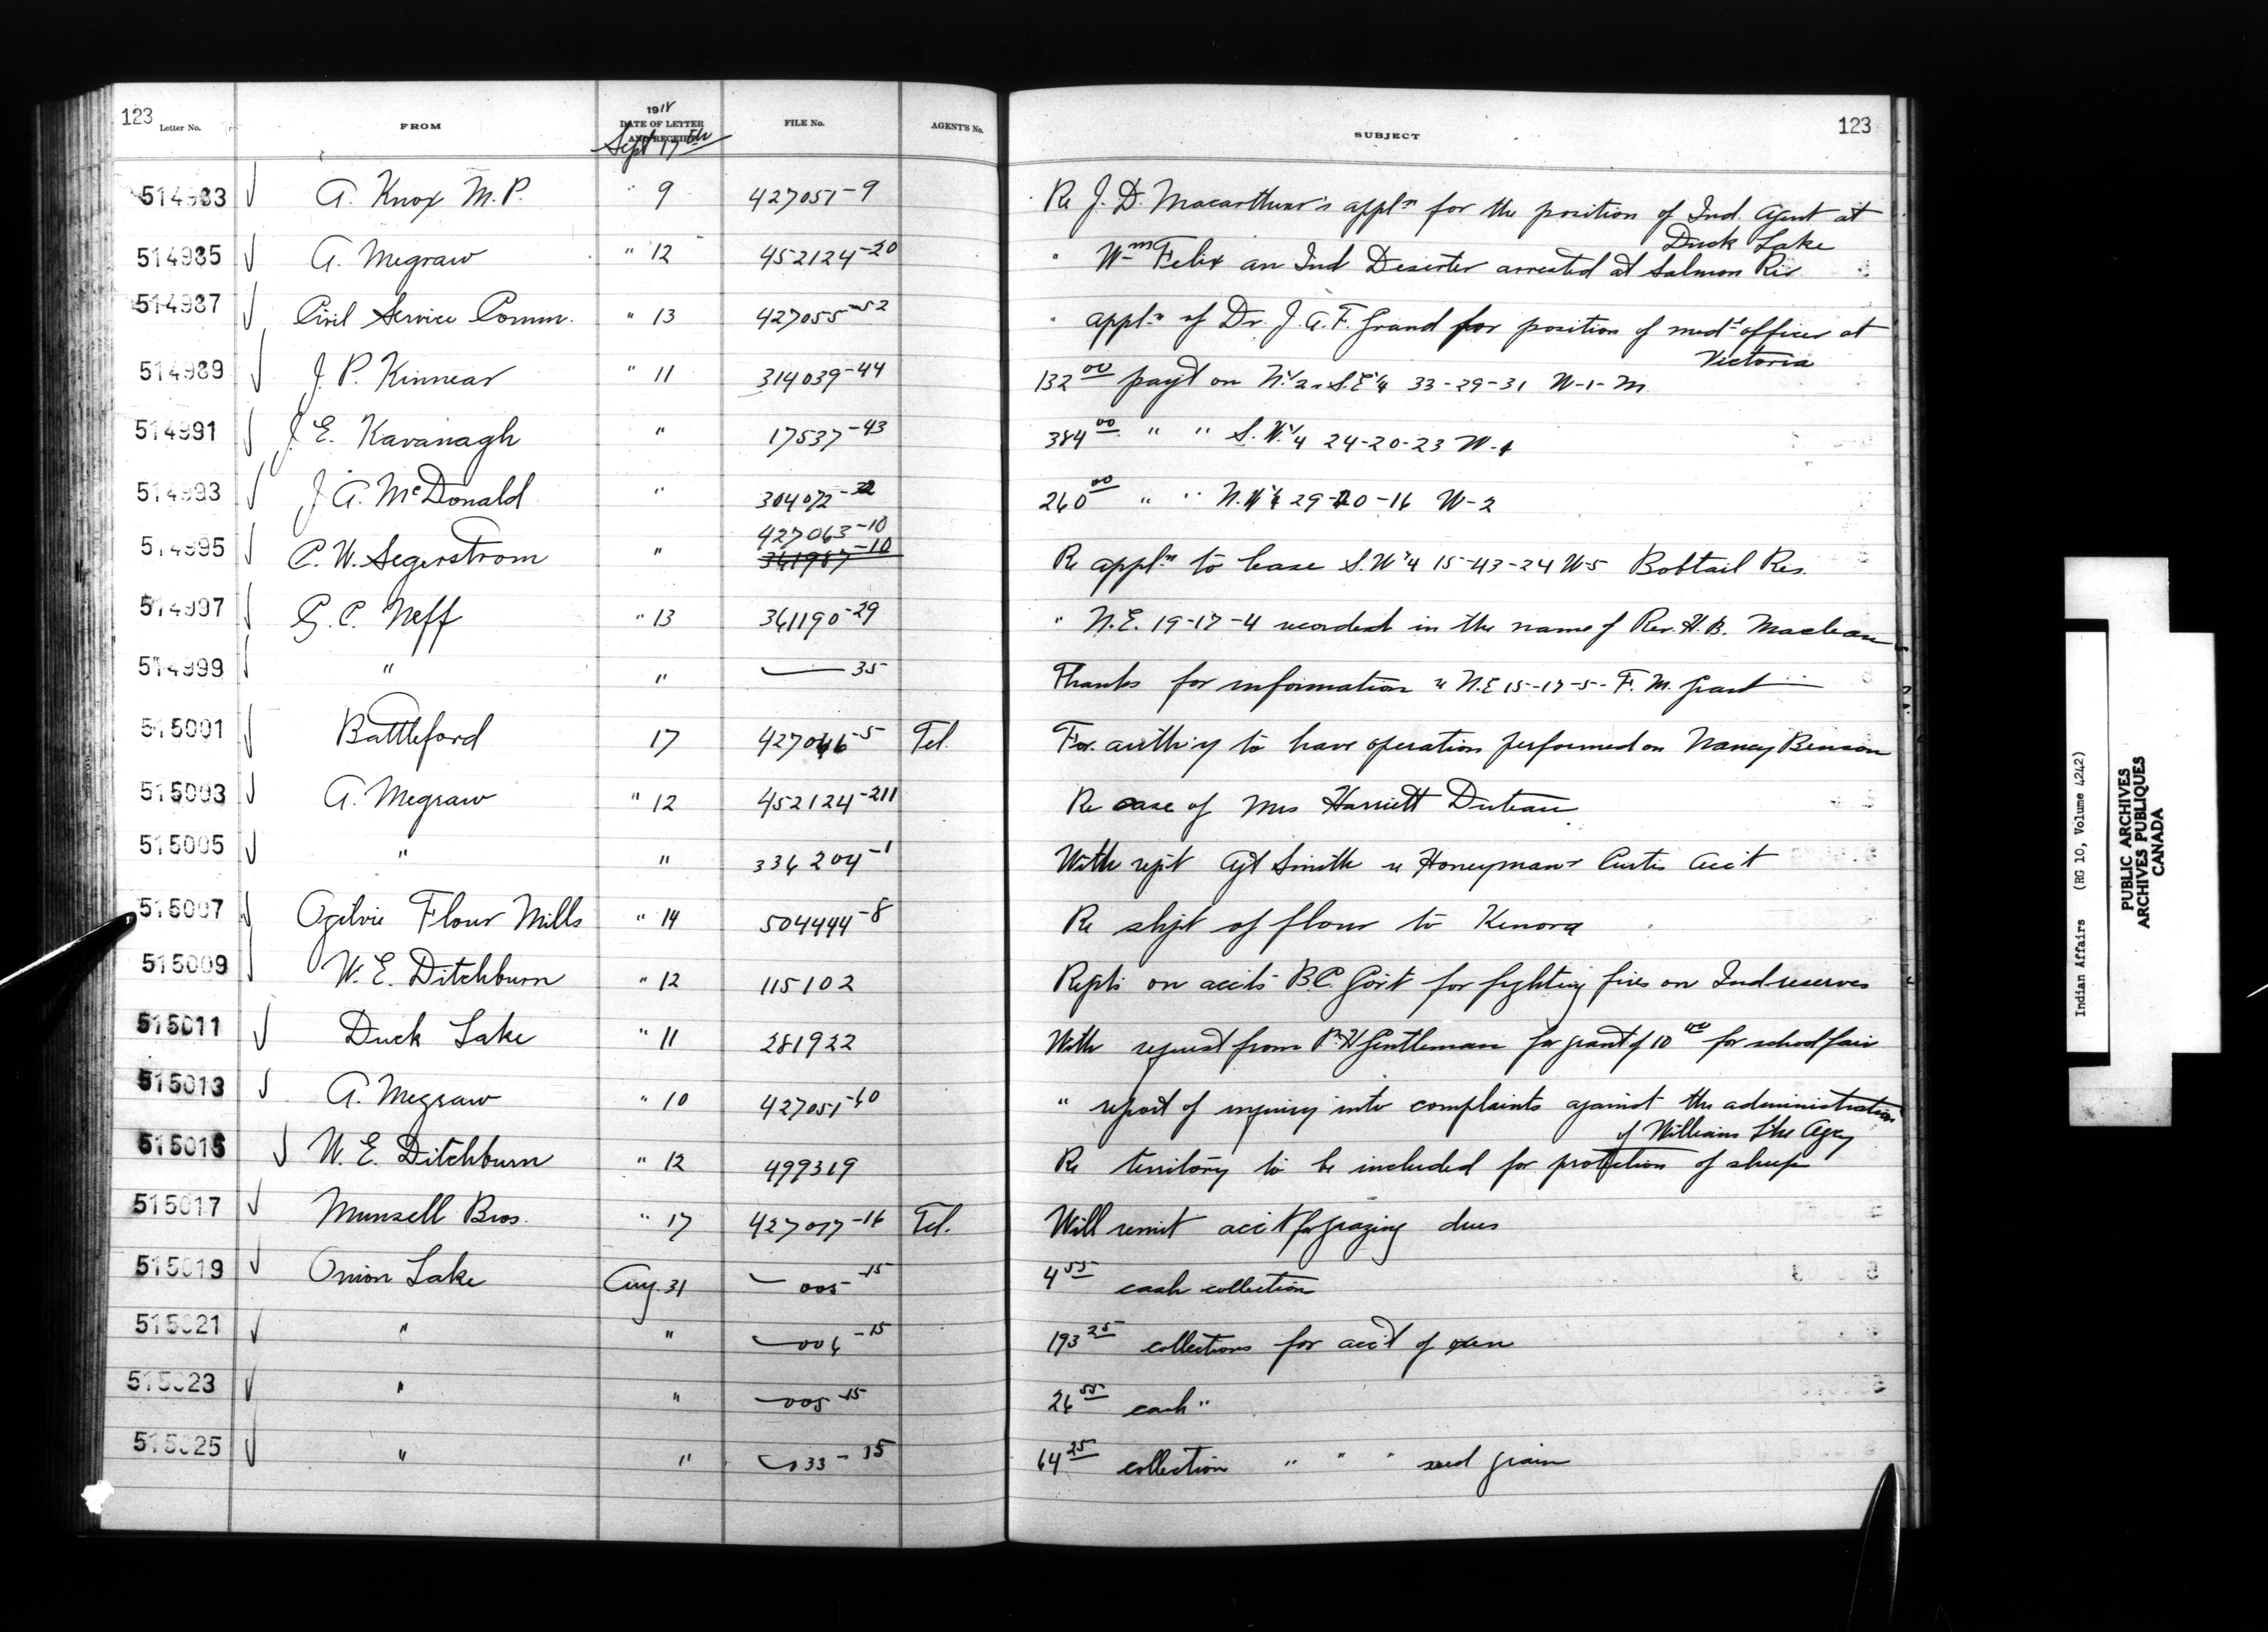 123 Letter No. FROM 1918 DATE OF LETTER AND RECEIPT FILE No. AGENT'S No. SUBJECT 123
Sept 17th
514983 A. Knox M.P. " 9 427051-9 Re J. D. Macarthur's appln for the position of Ind. Agent at
Duck Lake
514985 A. Megraw " 12 452124-20 " Wm Felix an Ind Deserter arrested at Salmon Riv
514987 Civil Service Comm. " 13 427055-52 " appln of Dr. J. A. F. Grand for position of medl officer at
Victoria
514989 J. P. Kinnear " 11 314039-44 132 00 payt on N.1/2 S.E 1/4 33-29-31 W-1-M.
514991 J. E. Kavanagh " 17537-43 384 00 " " S.W. 1/4 24-20-23 W-1
514993 J. A. McDonald " 304072-32 260 00 " " N.W 1/4 29-20-16 W-2
427063-10
514995 C. W. Segerstrom " 361987-10 Re appln to lease S.W 1/4 15-43-24 W-5 Bobtail Res.
514997 G. C. Neff " 13 361190-29 " N.E. 19-17-4 recorded in the name of Rev. H. B. Maclean
514999 " " — 35 Thanks for information re N.E 15-17-5- F. M. Grant
515001 Battleford 17 427046-5 Tel. For auth'y to have operation performed on Nancy Benson
515003 A. Megraw " 12 452124-211 Re case of Mrs Harriett
515005 " " 334204-1 With rept Agt Smith re Honeyman & Curtis acc't
515007 Ogilvie Flour Mills " 14 504444-8 Re shpt of flour to Kenora
515009 W. E. Ditchburn " 12 115102 Repts on accts B.C. Gov't for fighting fires on Ind reserves
515011 Duck Lake " 11 281922 With request from Gentleman for grant of 10 00 for school fair
515013 A. Megraw " 10 427051-60 " report of inquiry into complaints against the administration
of Williams Lke Agcy
515015 W. E. Ditchburn " 12 499319 Re territory to be included for protection of sheep
515017 Munsell Bros. " 17 427077-16 Tel. Will remit acc't for grazing dues
515019 Onion Lake Aug. 31 — 005-15 4 55 cash collection
515021 " " — 006-15 193 25 collections for acc't of oxen
515023 " " — 005-15 26 55 cash "
515025 " " — 033-15 64 25 collection " " " seed grain
Indian Affairs (RG 10, Volume 4242)
PUBLIC ARCHIVES
ARCHIVES PUBLIQUES
CANADA